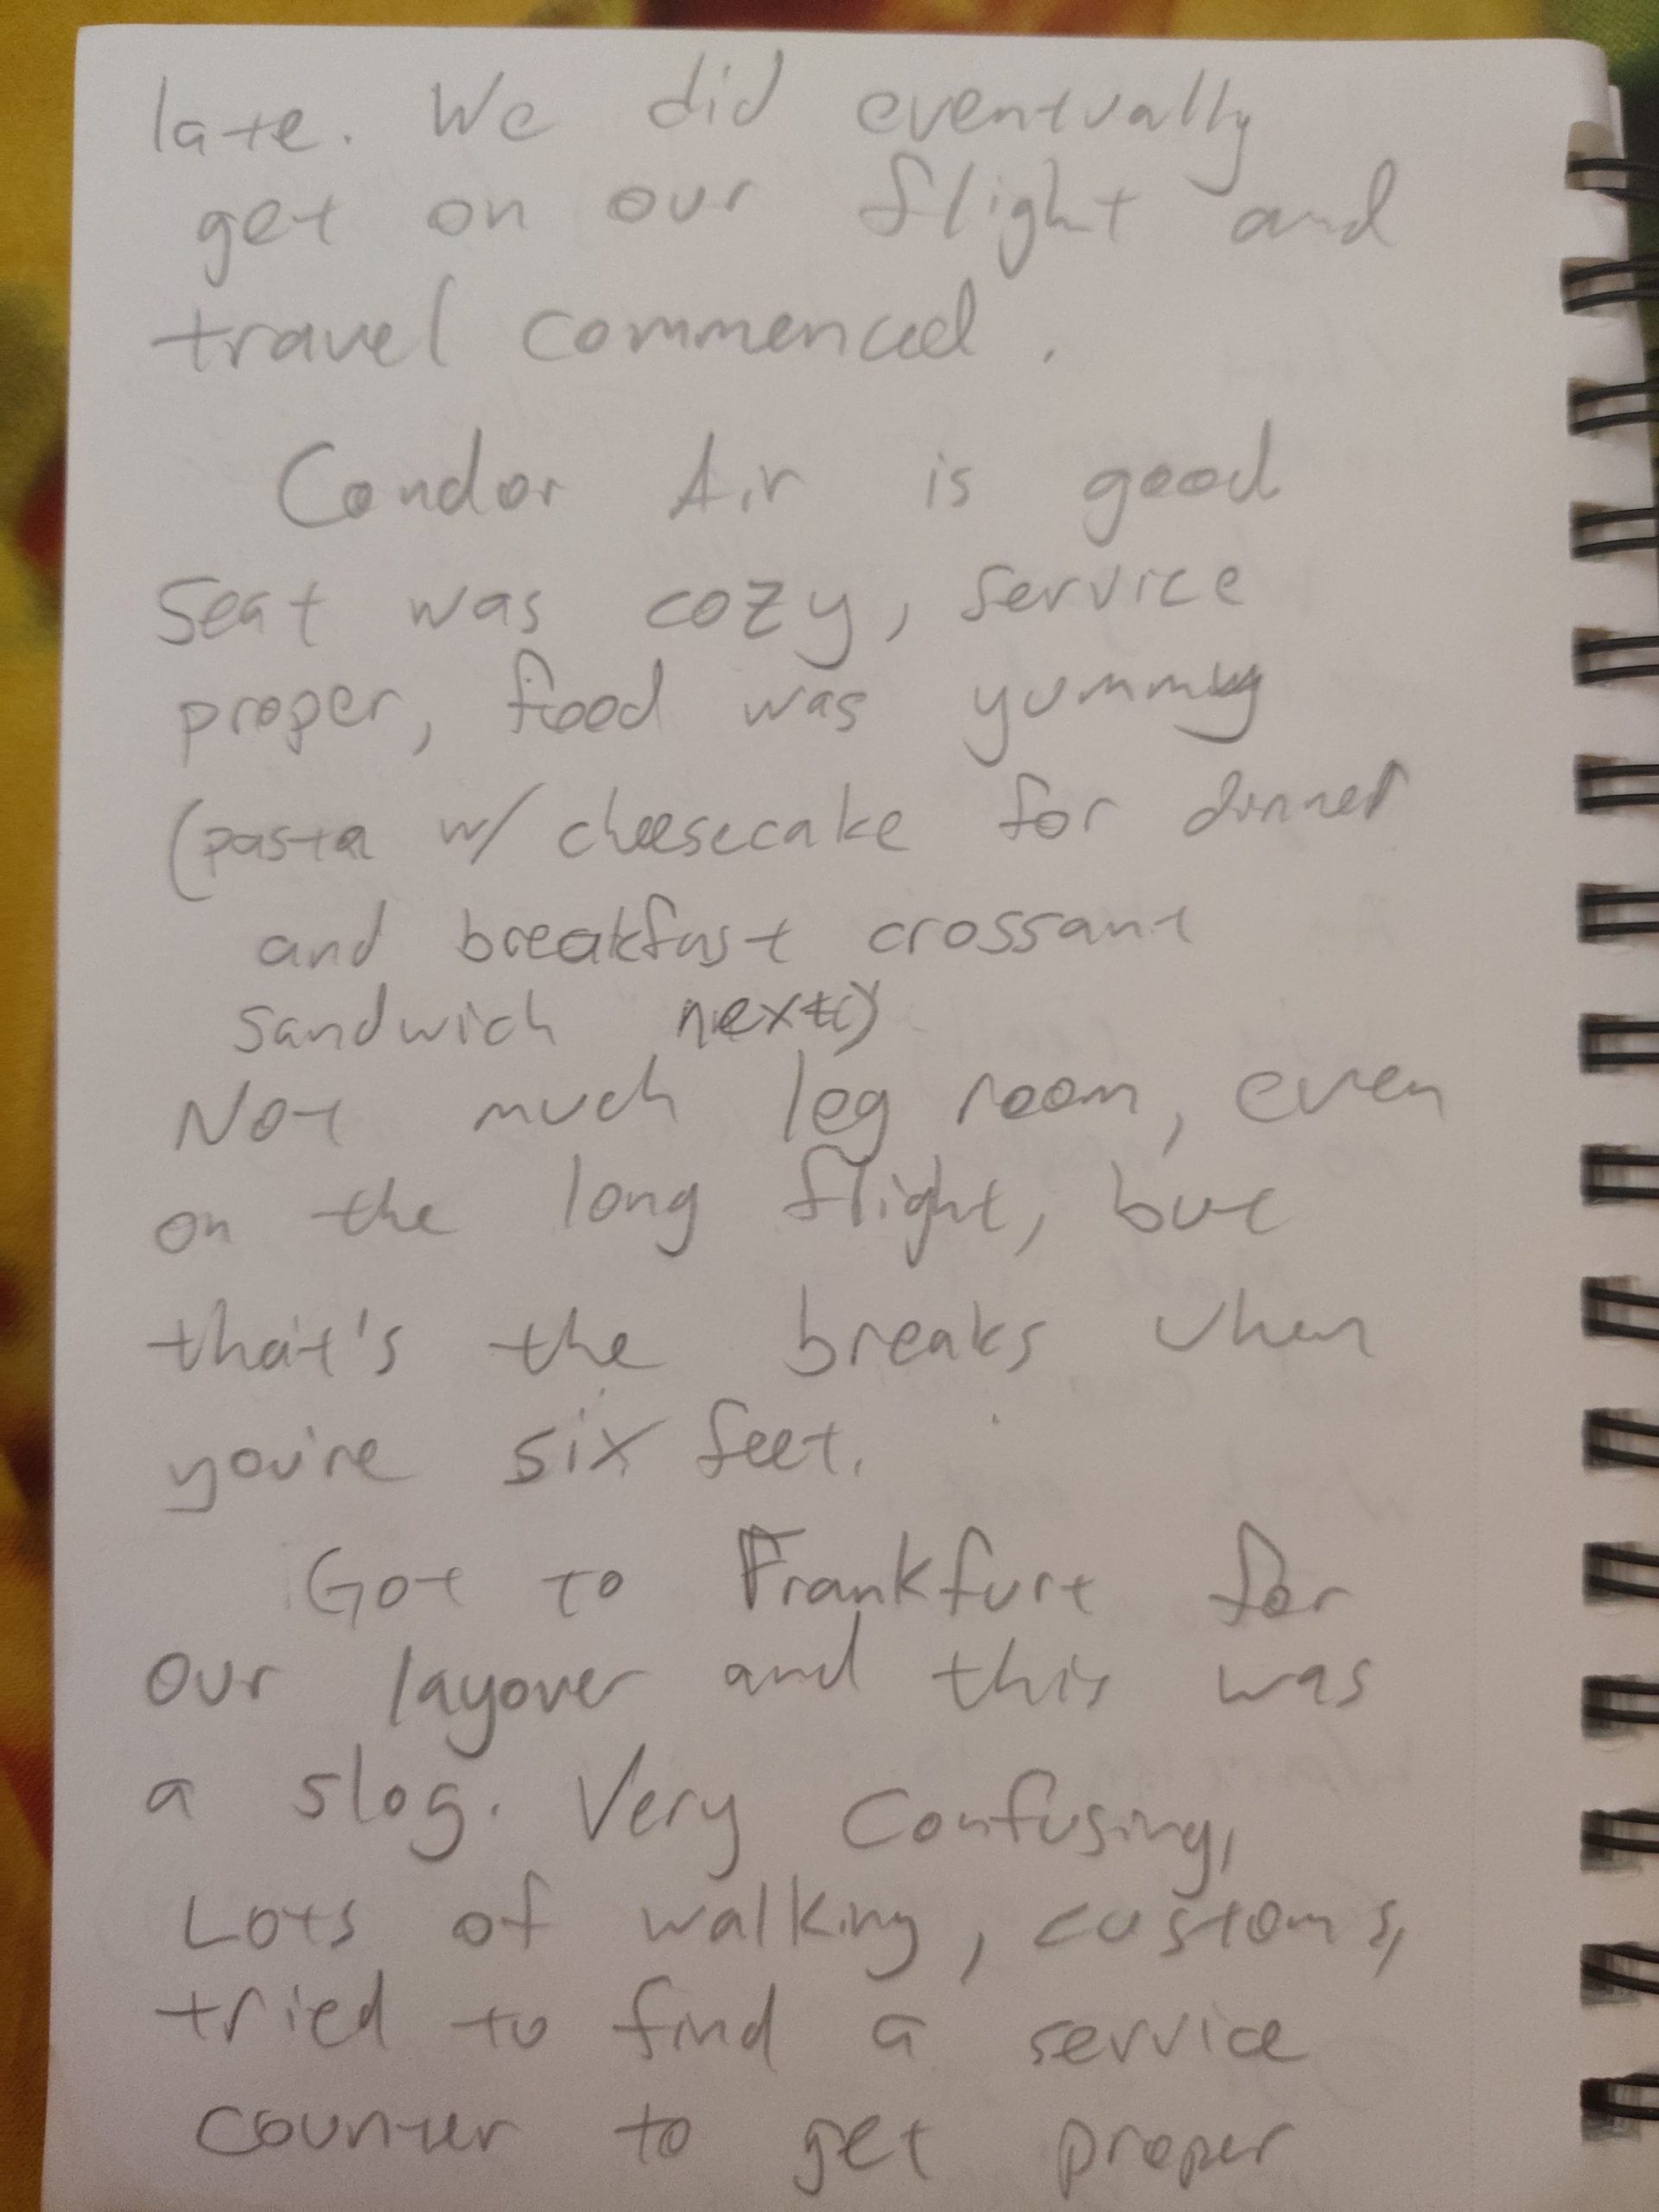 late. We did eventually
get on our flight and
travel commenced.
Condor Air is good
Seat was cozy, service
proper, food was yummy
(pasta w/ cheesecake for dinner
and breakfast crossant
sandwich next)
Not much leg room, even
on the long flight, but
that's the breaks when
you're six feet.
Got to Frankfurt for
our layover and this was
a slog. Very confusing,
Lots of walking, customs,
tried to find a service
counter to get proper